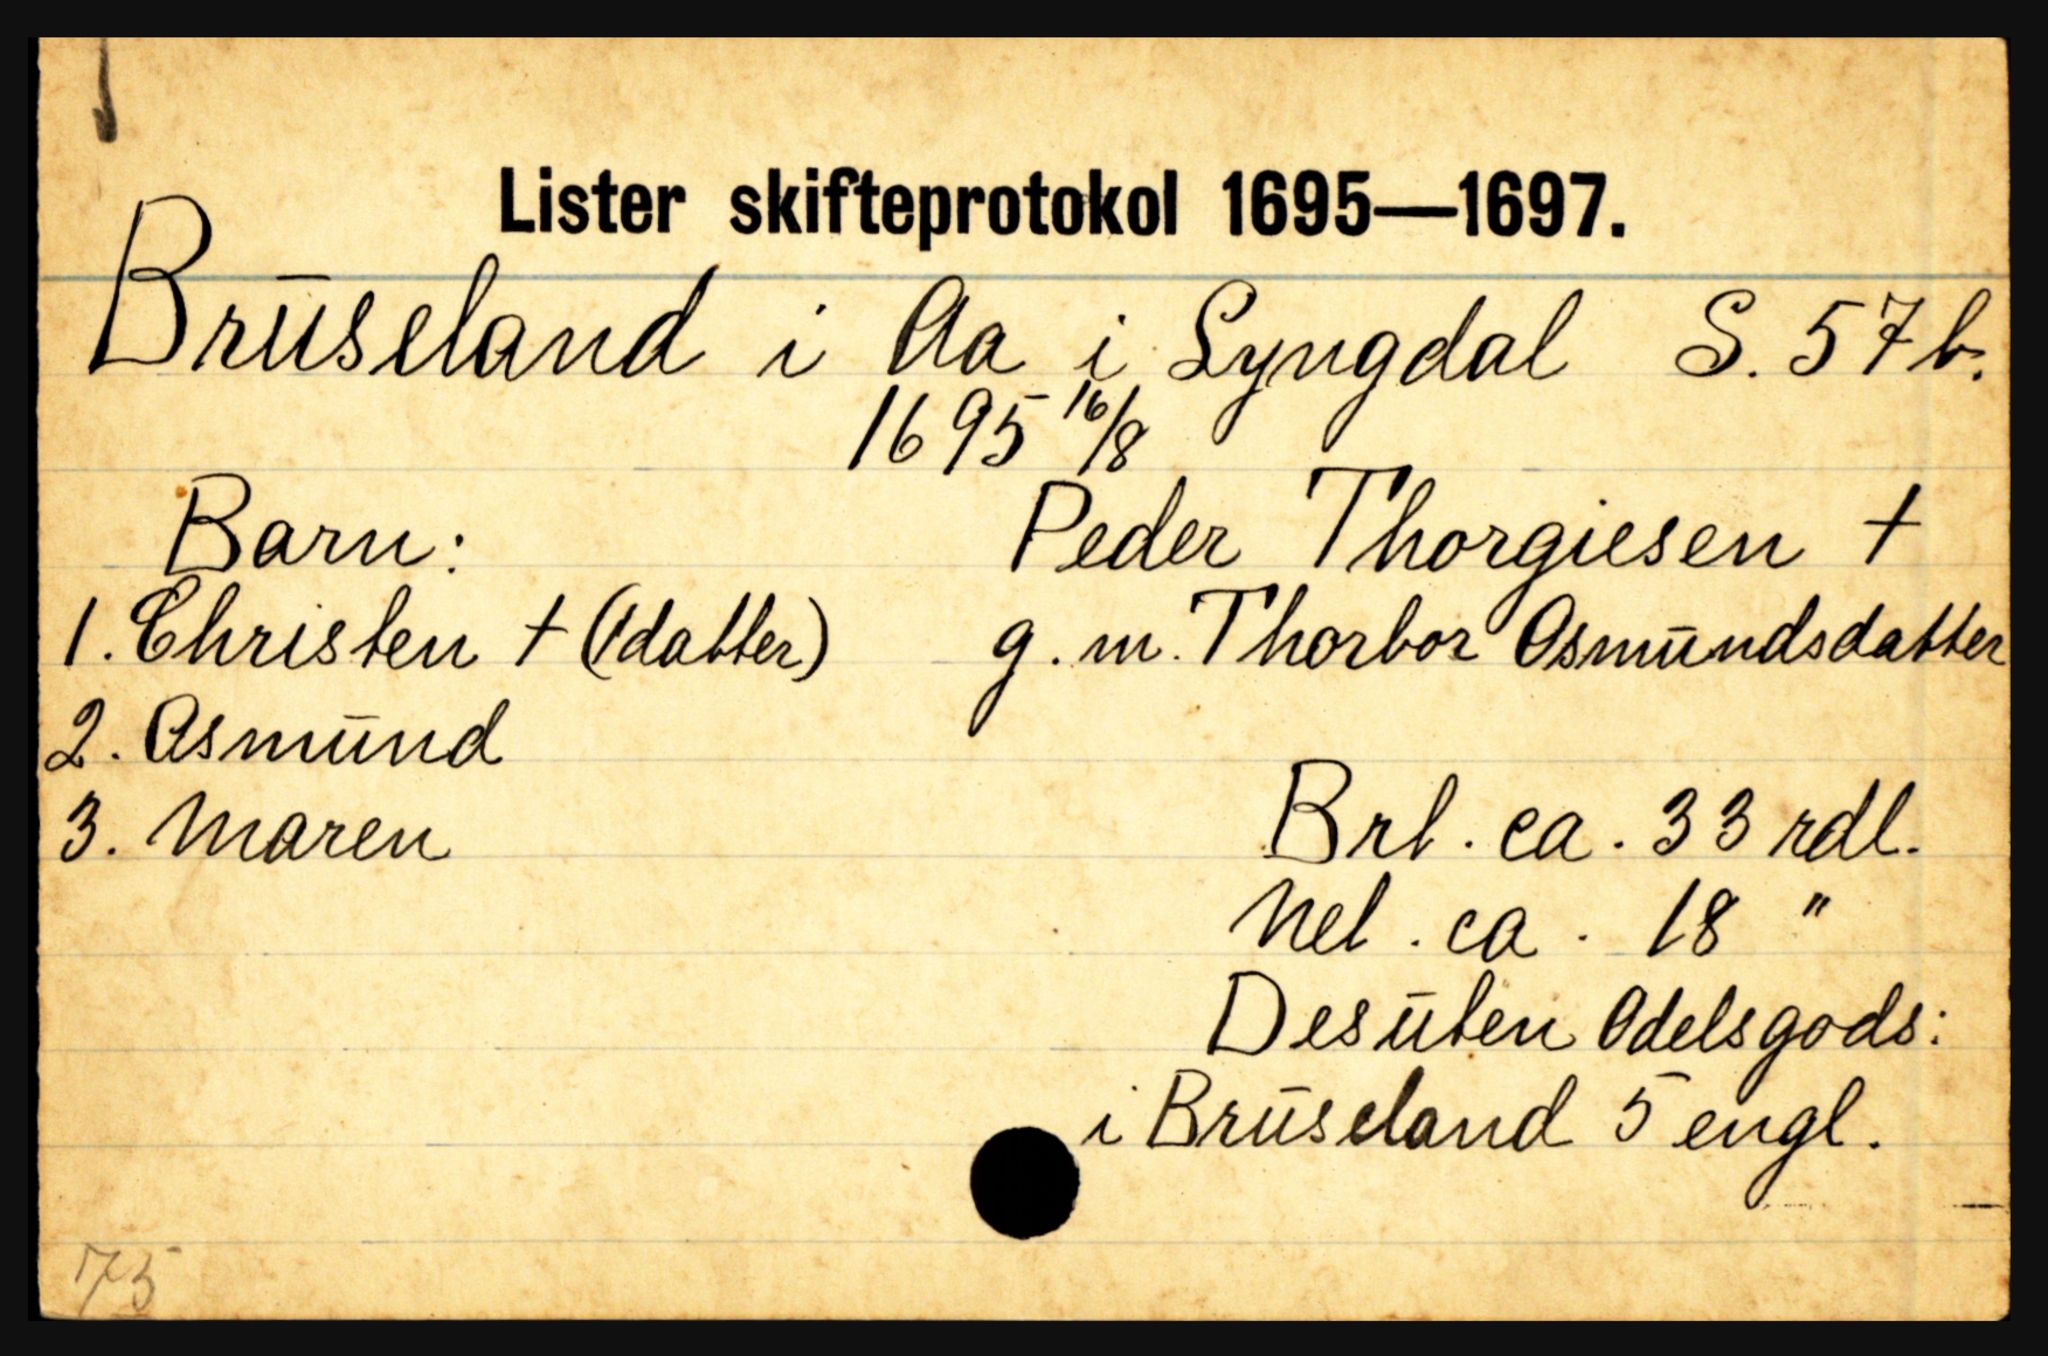 Lister skifteprotokol 1695—1697.
Brūseland i Aa i Lyngdal S. 57b.
1695 16/8
Barn: Peder Thorgiesen †
1. Christen † (1 datter) g. m. Thorbor Osmūndsdatter
2. Osmūnd
3. Maren Brt. ca. 33 rdl.
Net. ca. 18 "
Desūten Odelsgods:
i Brūseland 5 engl.
75